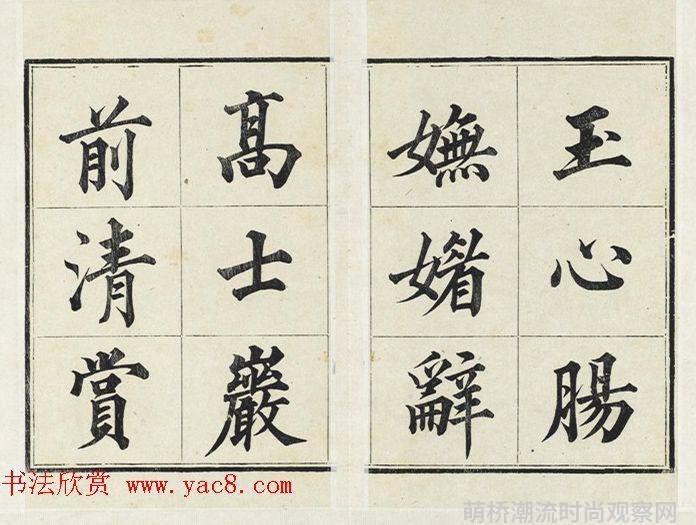 玉心腸
嫵媚辭
髙士巖
前清賞
书法欣赏 www.yac8.com
萌桥潮流时尚观察网